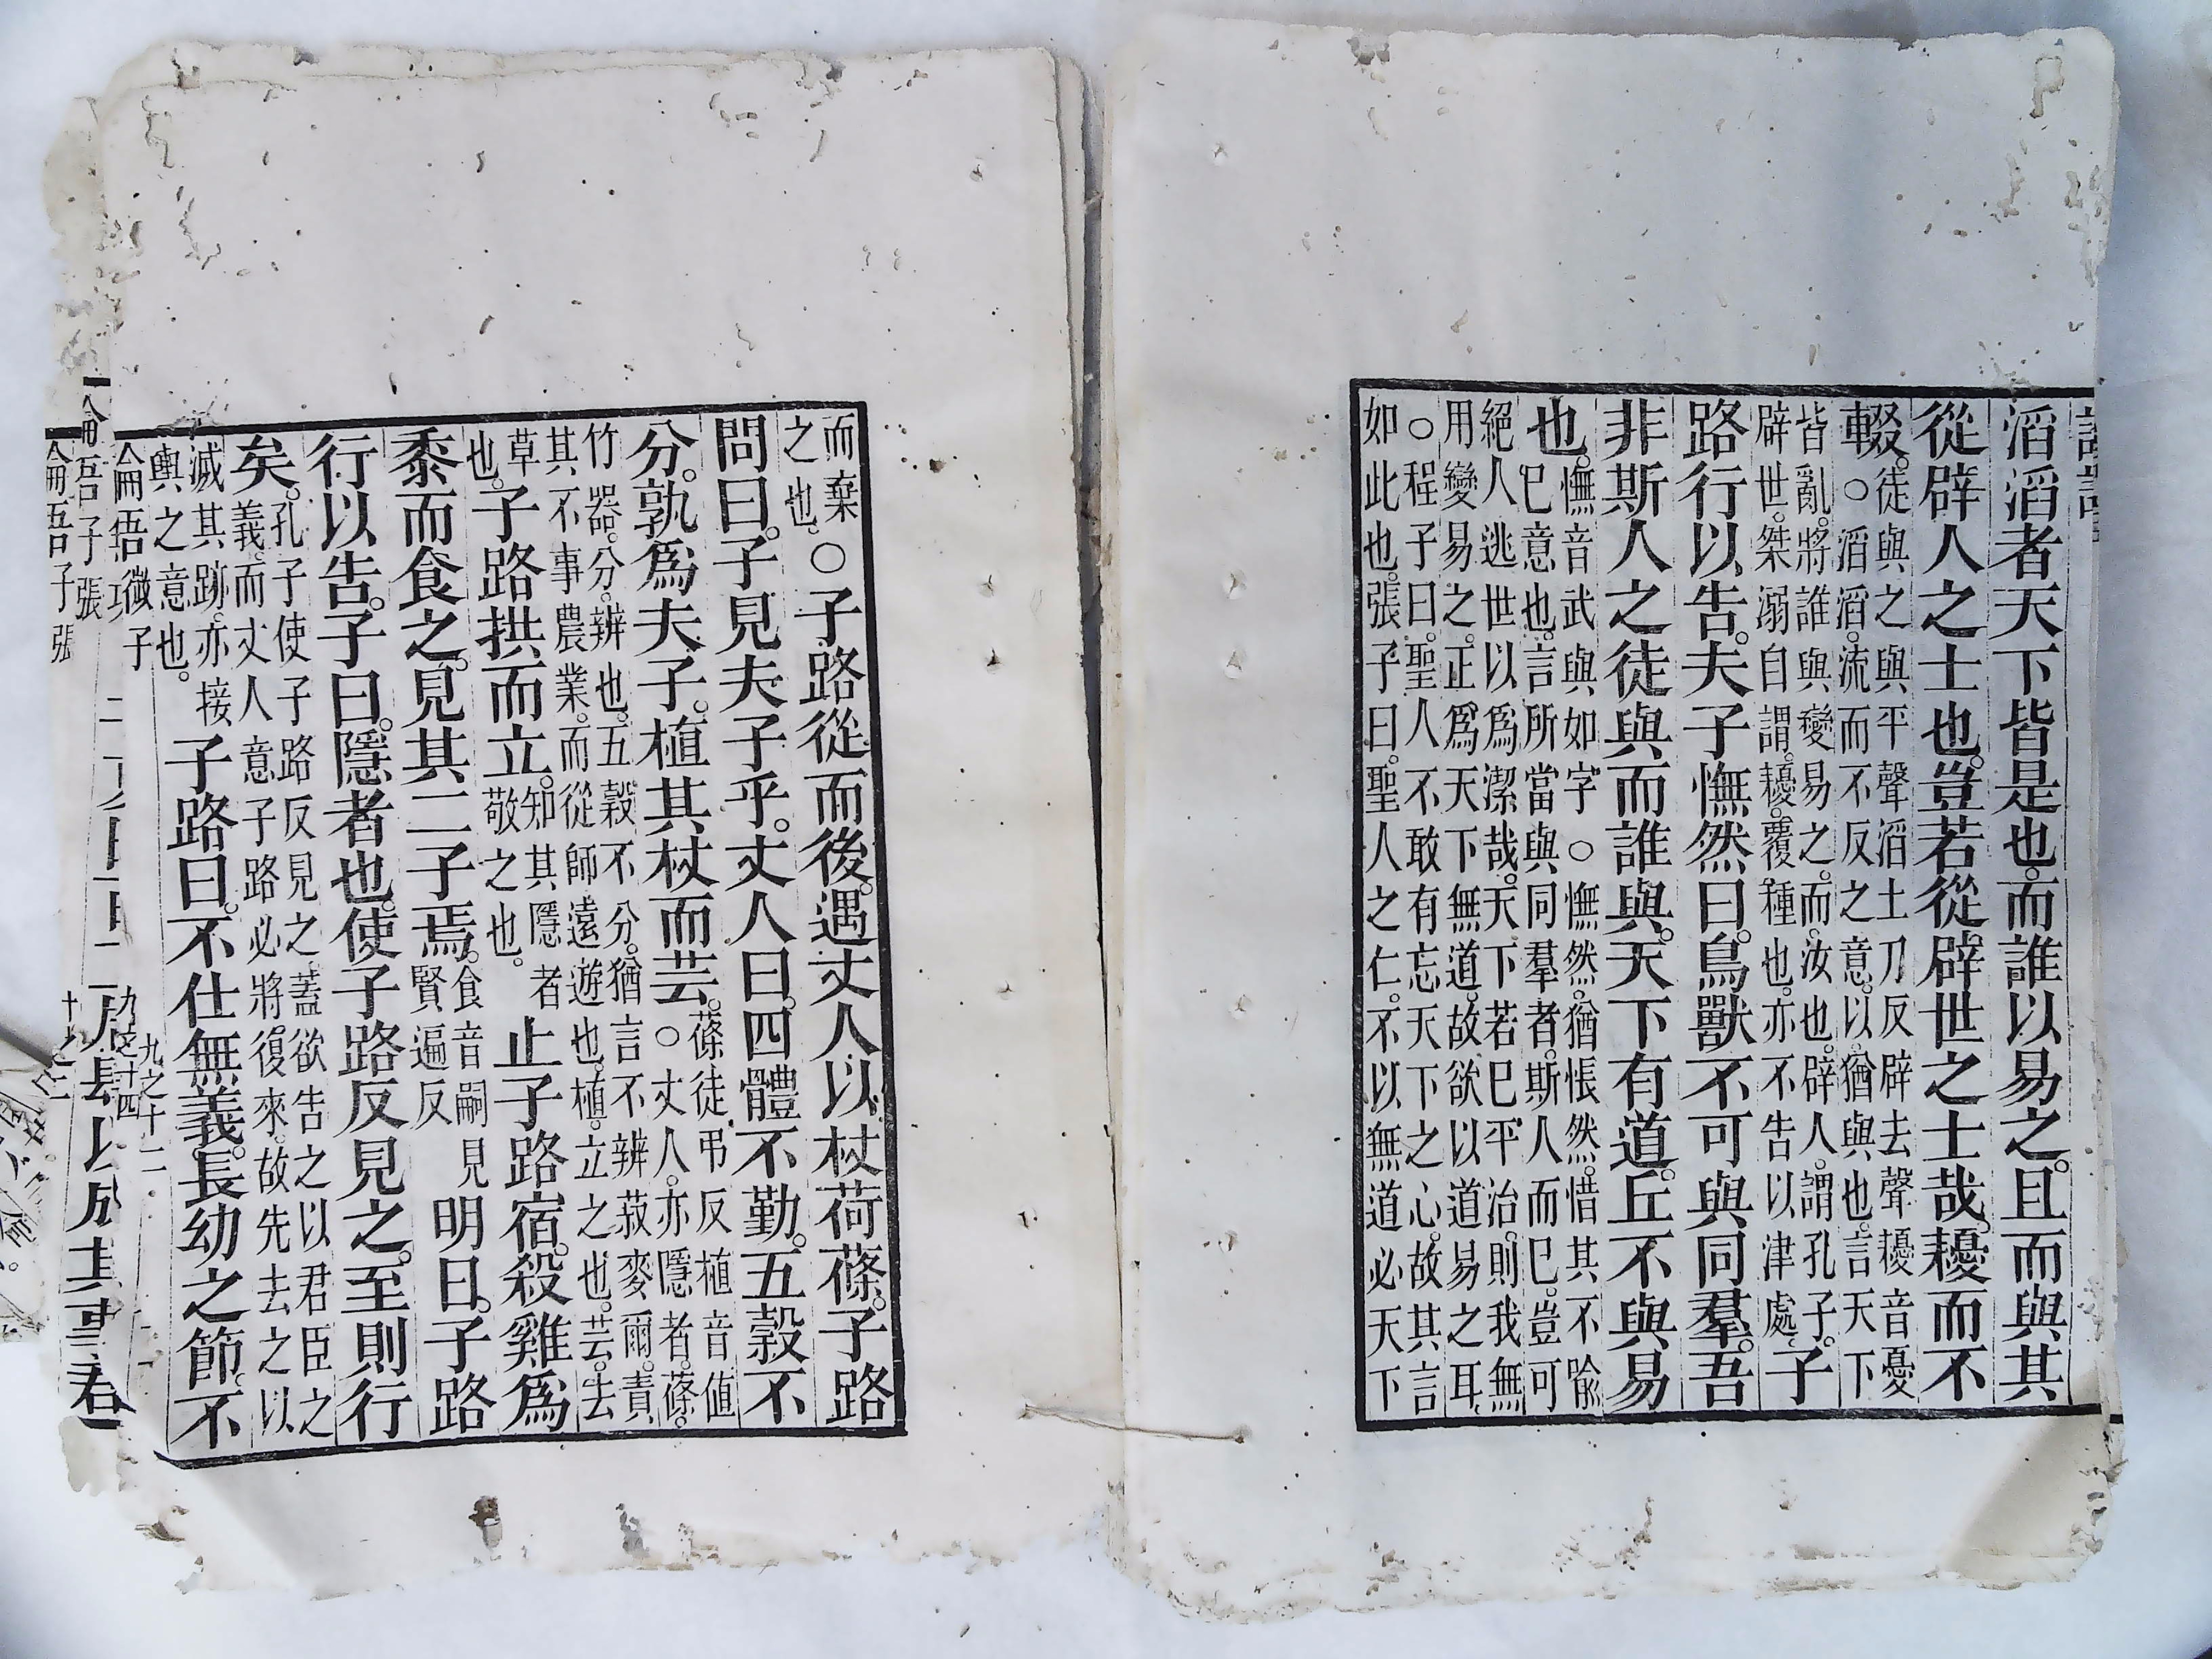 滔滔者天下皆是也。而誰以易之。且而與其
從辟人之士也。豈若從辟世之士哉。耰而不
輟。徒與之與平聲滔土刀反辟去聲耰音憂
○滔滔。流而不反之意。以。猶與也。言天下
皆亂。將誰與變易之。而。汝也。辟人。謂孔子。
辟世。桀溺自謂。耰。覆種也。亦不告以津處。子
路行以告。夫子憮然曰。鳥獸不可與同羣。吾
非斯人之徒與而誰與。天下有道。丘不與易
也。憮音武與如字○憮然。猶悵然。惜其不喻
已意也。言所當與同羣者。斯人而已。豈可
絕人逃世以爲潔哉。天下若已平治。則我無
用變易之。正爲天下無道。故欲以道易之耳。
○程子曰。聖人不敢有忘天下之心。故其言
如此也。張子曰。聖人之仁。不以無道必天下
而棄
之也。○子路從而後。遇丈人以杖荷蓧。子路
問曰。子見夫子乎。丈人曰。四體不勤。五穀不
分。孰爲夫子。植其杖而芸。蓧徒弔反植音値
○丈人。亦隱者。蓧。
竹器。分。辨也。五穀不分。猶言不辨菽麥爾。責
其不事農業。而從師遠遊也。植。立之也。芸。去
草
也。子路拱而立。知其隱者
敬之也。止子路宿。殺雞爲
黍而食之。見其二子焉。食音嗣見
賢遍反明日。子路
行以告。子曰。隱者也。使子路反見之。至則行
矣。孔子使子路反見之。蓋欲告之以君臣之
義。而丈人意子路必將復來。故先去之以
滅其跡。亦接
輿之意也。子路曰。不仕無義。長幼之節。不
論語微子
九之十三
子張
九之十四
子張